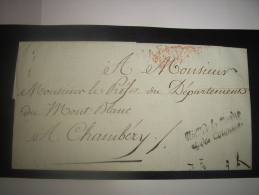 A Monsieur
Monsieur le Préfet du Département
du Mont Blanc
A Chambéry